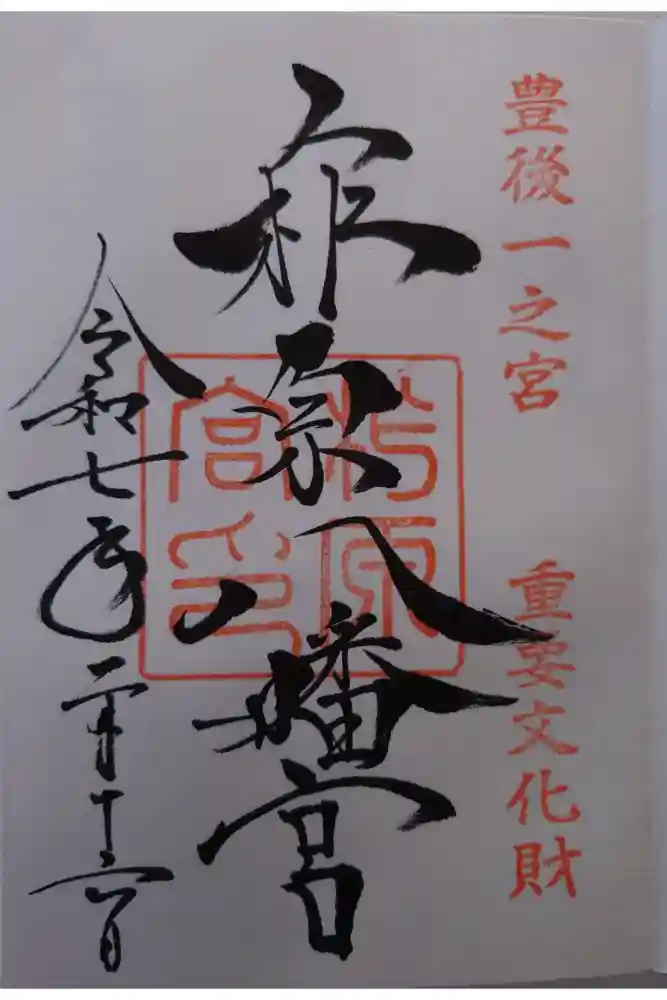 豊後一之宮 重要文化財
柞原八幡宮
令和七年二月十六日
柞原
宮印